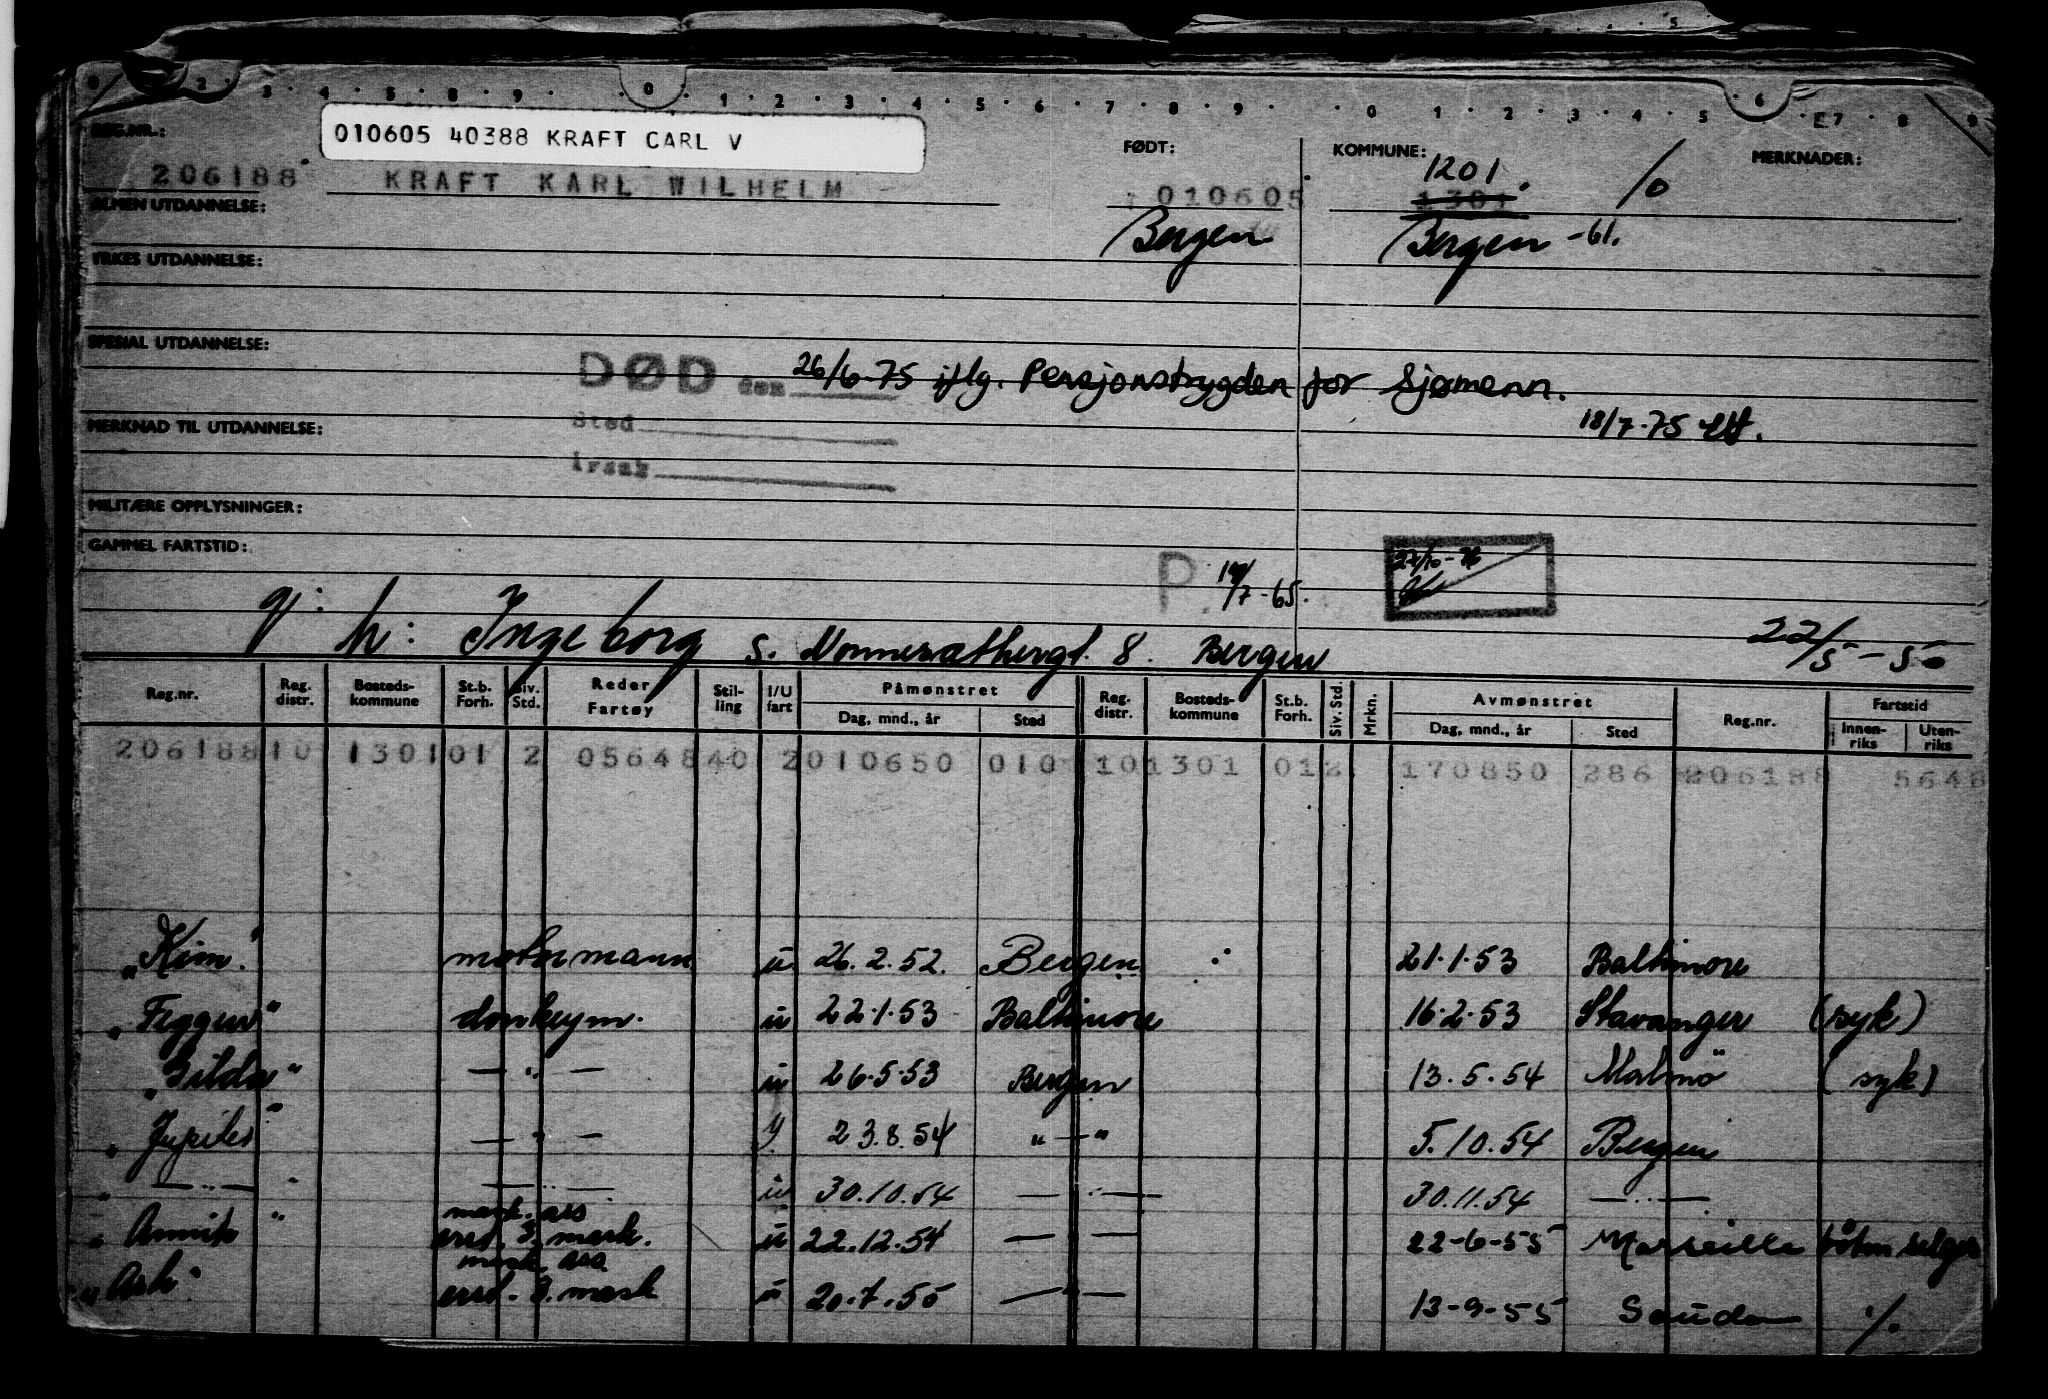 010605 40388 KRAFT CARL V
REG.NR.: FØDT: KOMMUNE: MERKNADER:
206188 KRAFT KARL WILHELM 010605 1201 1301
ALMEN UTDANNELSE: Bergen Bergen -61.
YRKES UTDANNELSE:
SPESIAL UTDANNELSE:
DØD den 26/6-75 iflg. Pensjonstrygden for Sjømenn.
Sted 18/7-75
MERKNAD TIL UTDANNELSE:
årsak
MILITÆRE OPPLYSNINGER:
GAMMEL FARTSTID:
P 14/7-65. 27/10-76
gj: h: Ingeborg s. Nonnesætherg. 8. Bergen 22/5-50
Reg.nr. Reg. distr. Bosteds-kommune St.b. Forh. Siv. Std. Reder Fartøy Stil-ling I/U fart Påmønstret Dag, mnd., år Sted Reg. distr. Bosteds-kommune St.b. Forh. Siv. Std. Mrkn. Avmønstret Dag, mnd., år Sted Reg.nr. Fartstid Innen-riks Uten-riks
206188 10 1301 01 2 05648 40 2 010650 010 10 1301 01 2 170850 286 206188 5648
"Kim" motormann u 26.2.52. Bergen 21.1.53 Baltimore
"Feggen" donkeym. u 22.1.53 Baltimore 16.2.53 Stavanger (syk)
"Gilda" — " — u 26.5.53 Bergen 13.5.54 Malmö (syk)
"Jupiter" — " — 23.8.54 " — " 5.10.54 Bergen
" — " — " — " — u 30.10.54 — " — 30.11.54 — " —
"Annik" mask. ass
erst. 3. mask. u 22.12.54 — " — 22-6-55 Marseille båten selges
"Ask" mask. ass.
erst. 3. mask u 20.7.55 — " — 13-9-55 Sauda ./.